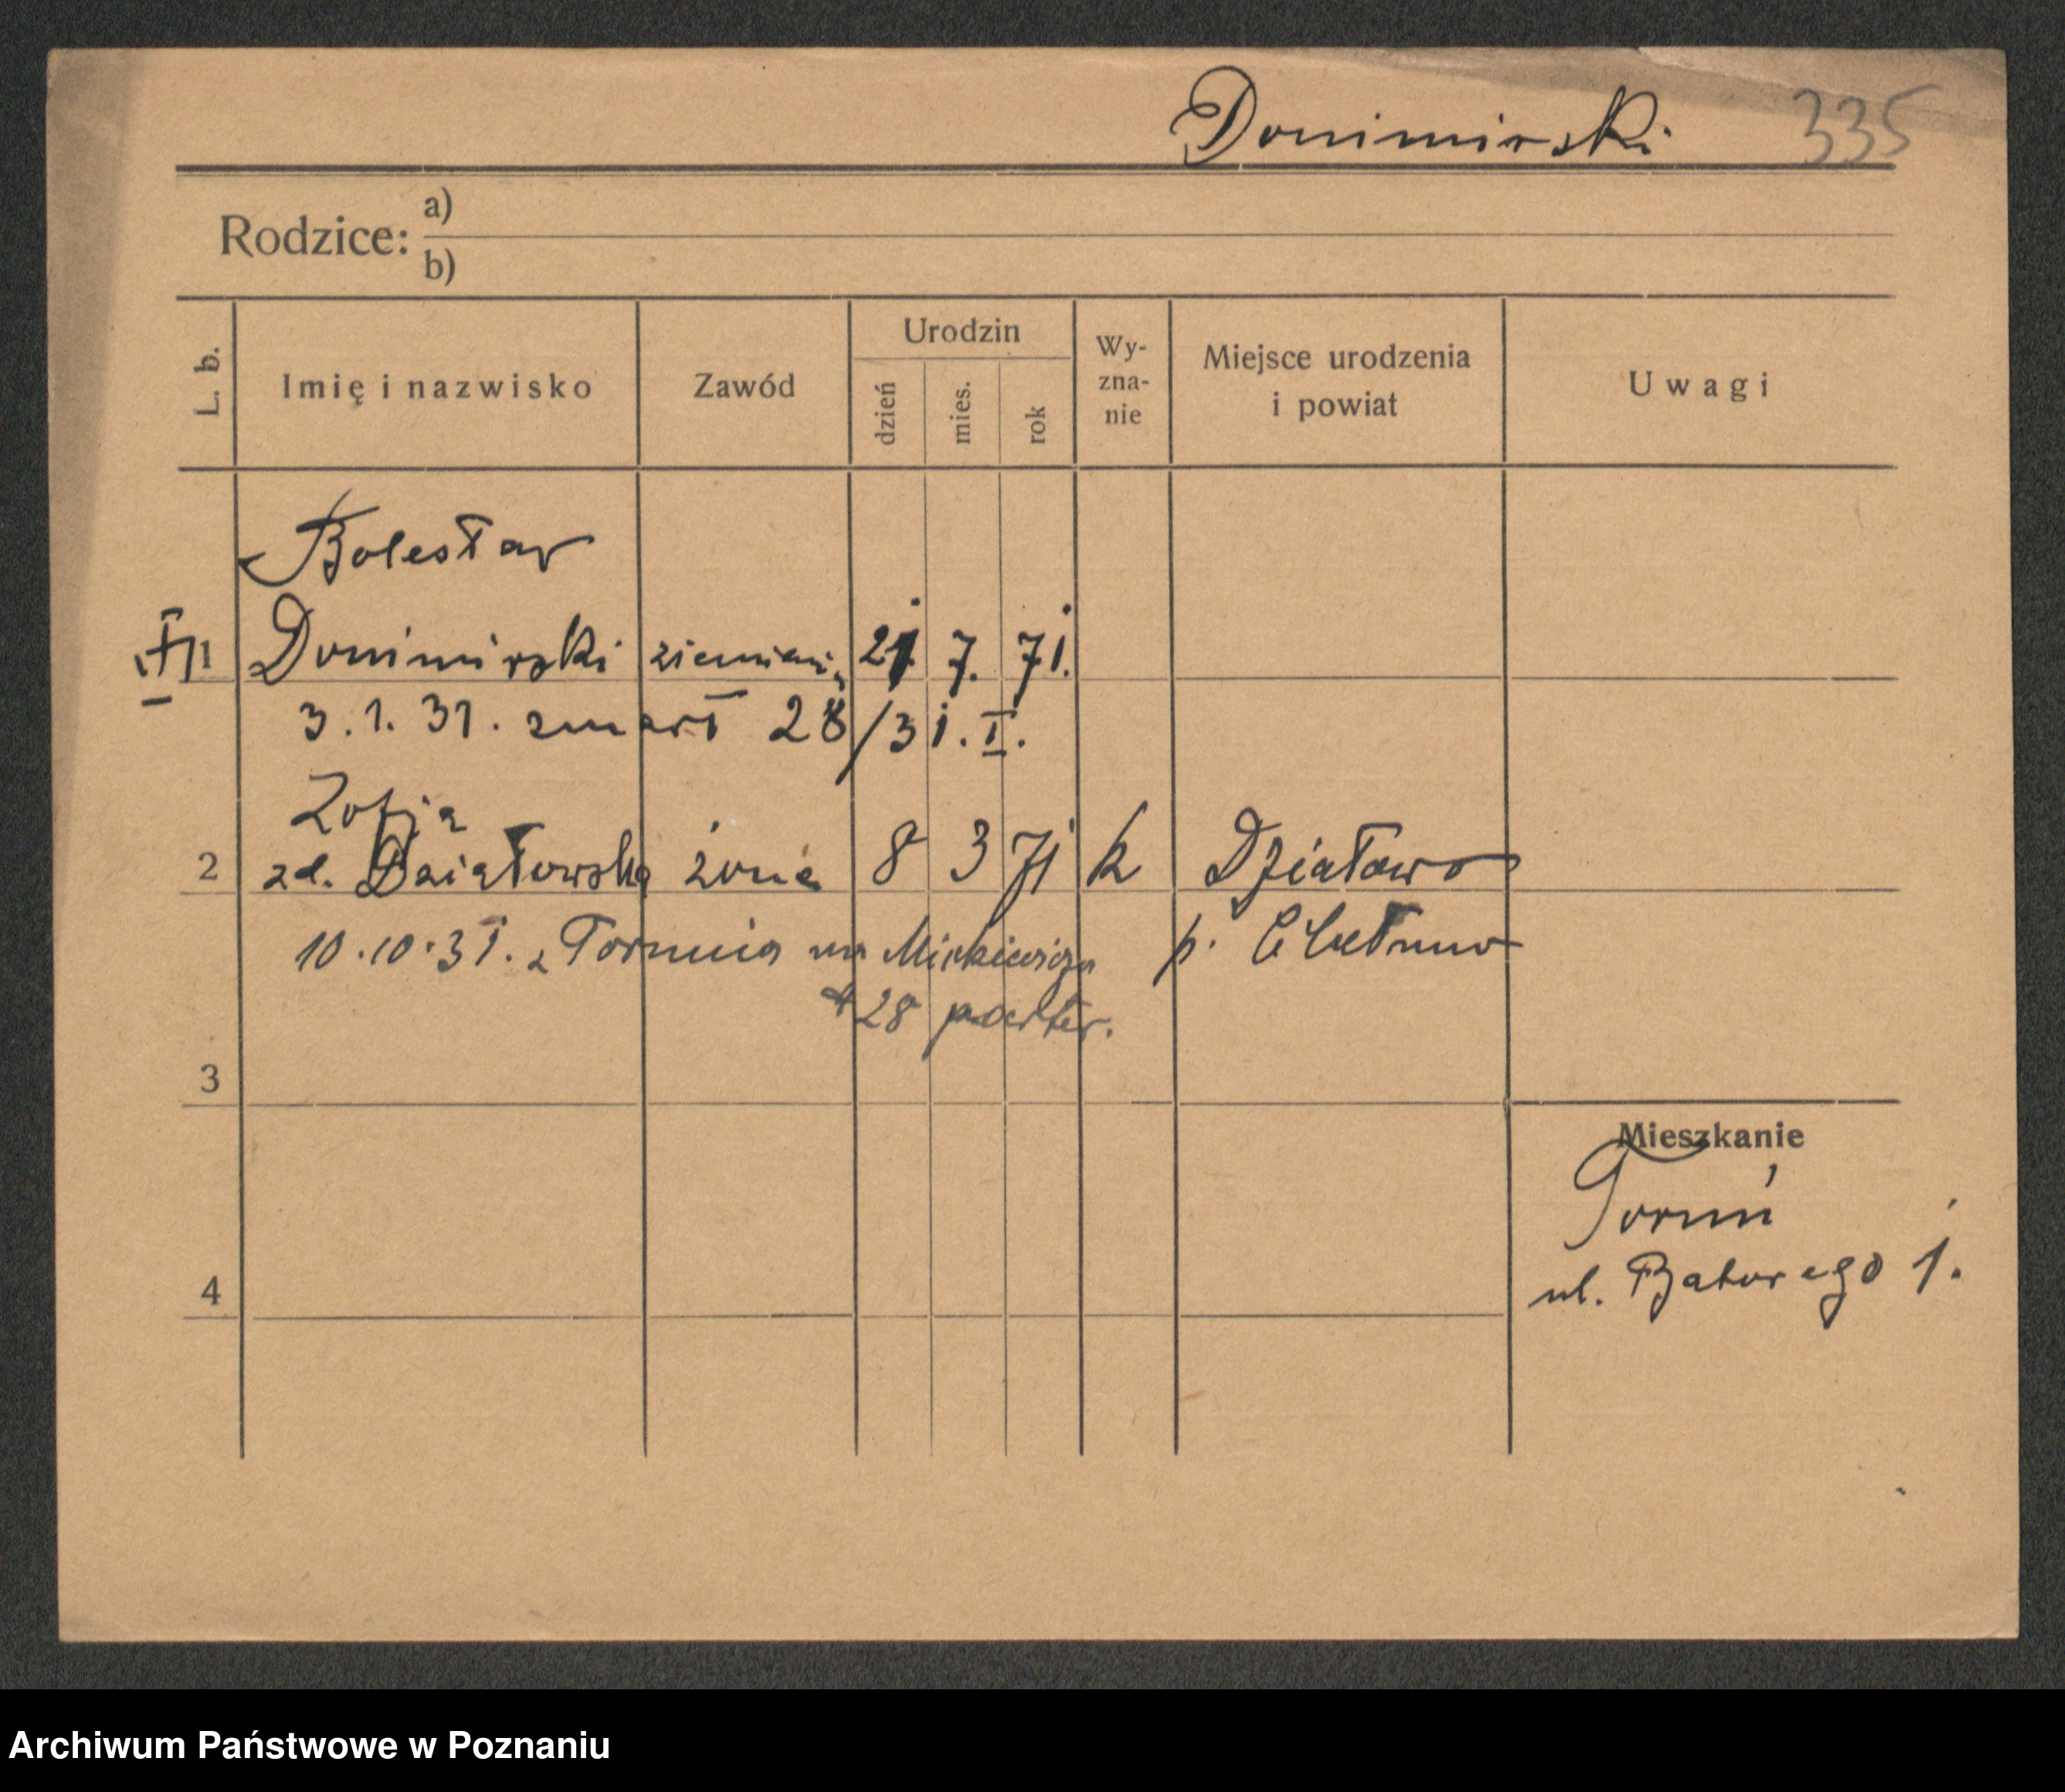 Donimirski 335
Rodzice: a)
b)
L. b. Imię i nazwisko Zawód Urodzin dzień mies. rok Wy-zna-nie Miejsce urodzenia i powiat Uwagi
Bolesław
1 Donimirski ziemian. 21. 7. 71.
3.1.31. zmarł 28/31.I.
Zofja
2 zd. Działowska żona 8 3 71 k Działowo
10.10.31. z Torunia na Mickiewicza p. Chełmno
28 parter.
3
Mieszkanie
Toruń
ul. Batorego 1.
4
Archiwum Państwowe w Poznaniu